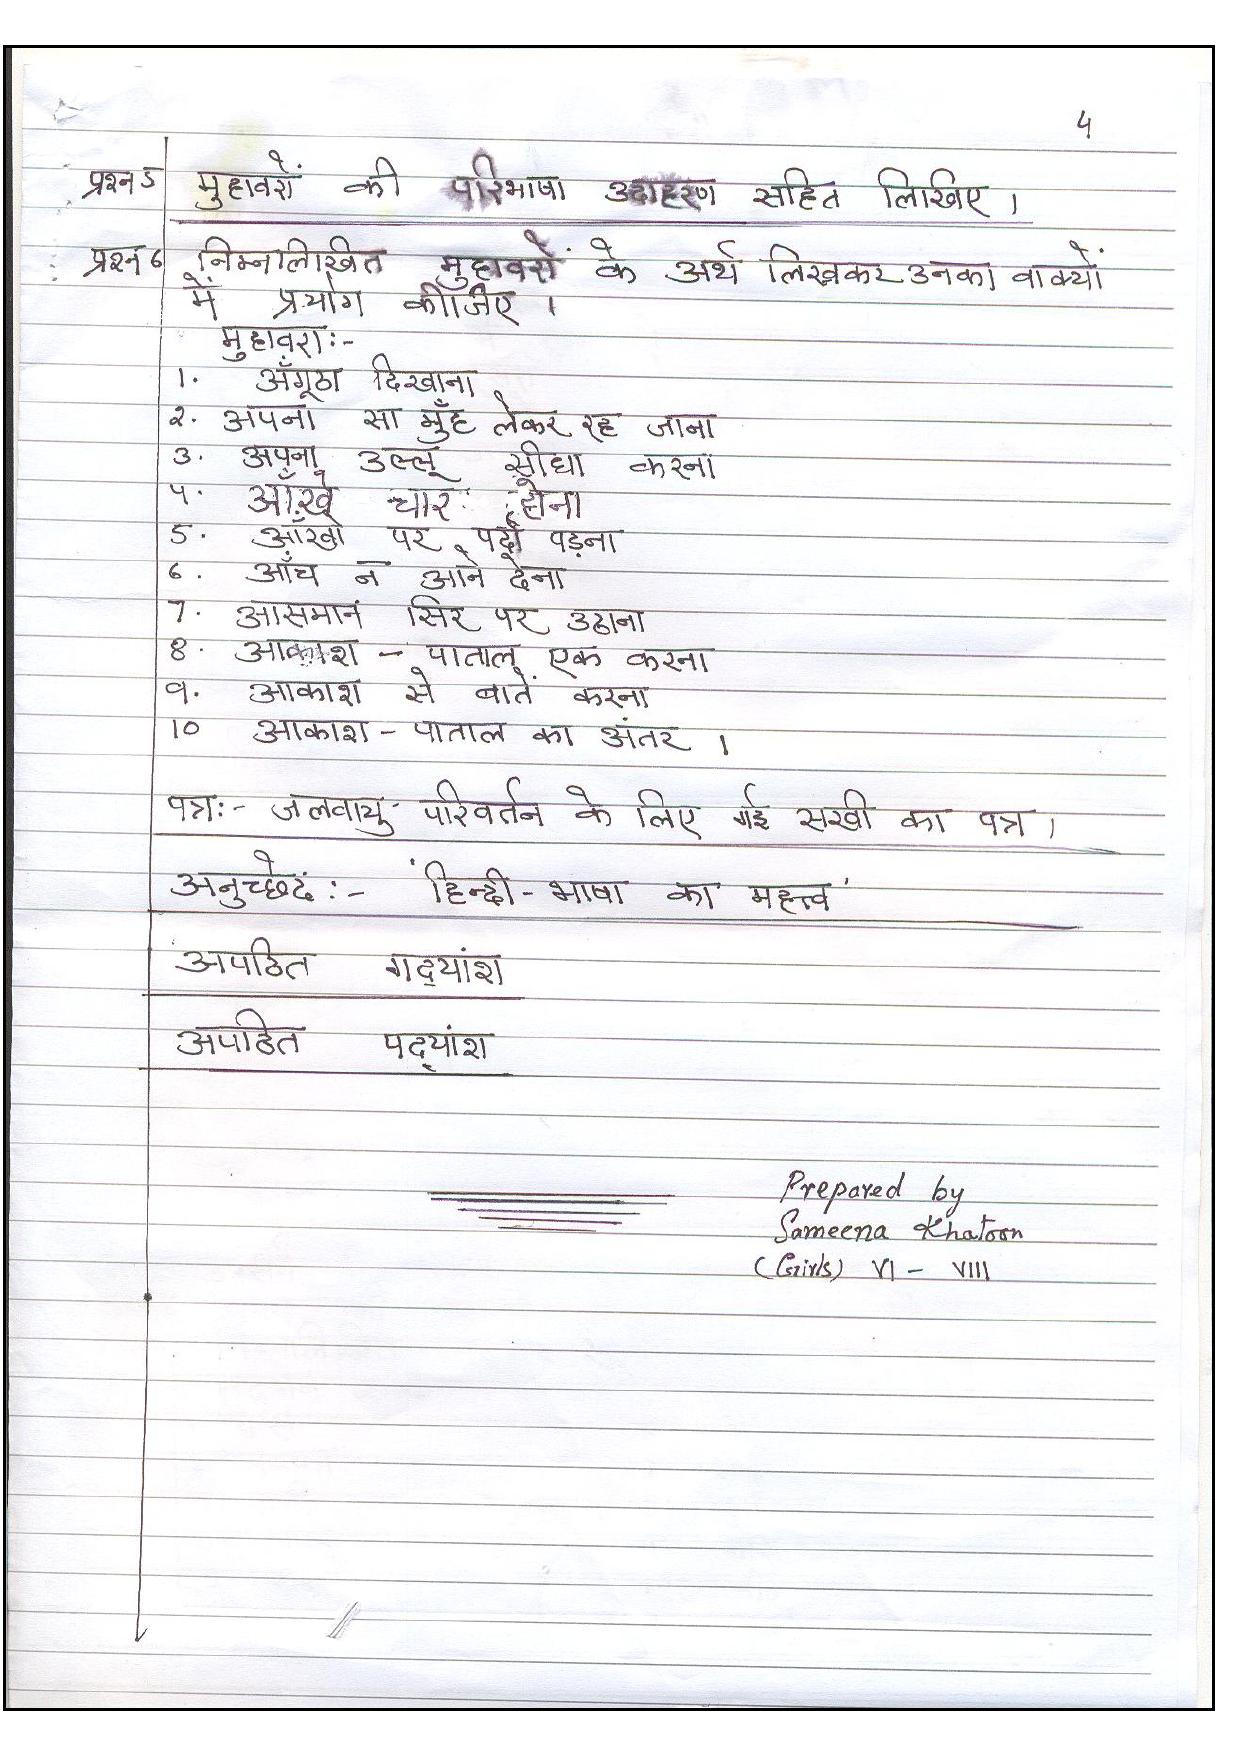 4
प्रश्न 5 मुहावरों की परिभाषा उदाहरण सहित लिखिए ।
प्रश्न 6 निम्नलिखित मुहावरों के अर्थ लिखकर उनका वाक्यों
में प्रयोग कीजिए ।
मुहावरा:-
1. अँगूठा दिखाना
2. अपना सा मुँह लेकर रह जाना
3. अपना उल्लू सीधा करना
4. आँखें चार होना
5. आँखों पर पर्दा पड़ना
6. आँच न आने देना
7. आसमान सिर पर उठाना
8. आकाश - पाताल एक करना
9. आकाश से बातें करना
10 आकाश - पाताल का अंतर ।
पत्र:- जलवायु परिवर्तन के लिए गई सखी का पत्र ।
अनुच्छेद:- 'हिन्दी - भाषा का महत्त्व'
अपठित गद्यांश
अपठित पद्यांश
Prepared by
Sameena Khatoon
(Girls) VI - VIII